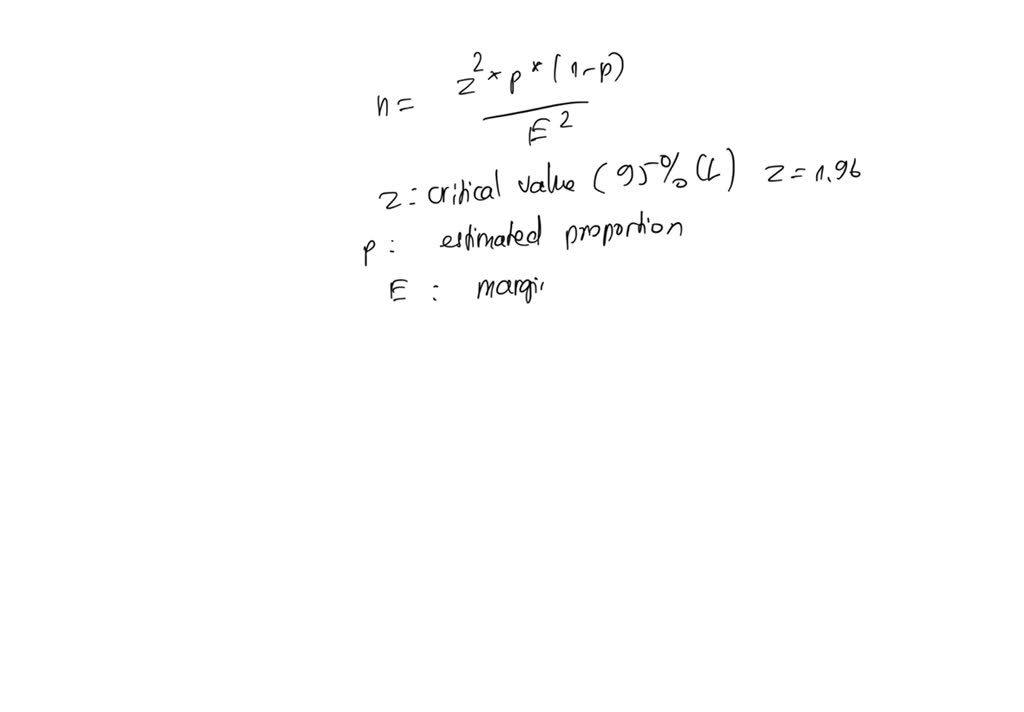 n = z² * p * (1-p)
E²
z : critical value (95% CL) z = 1.96
p : estimated proportion
E : margi